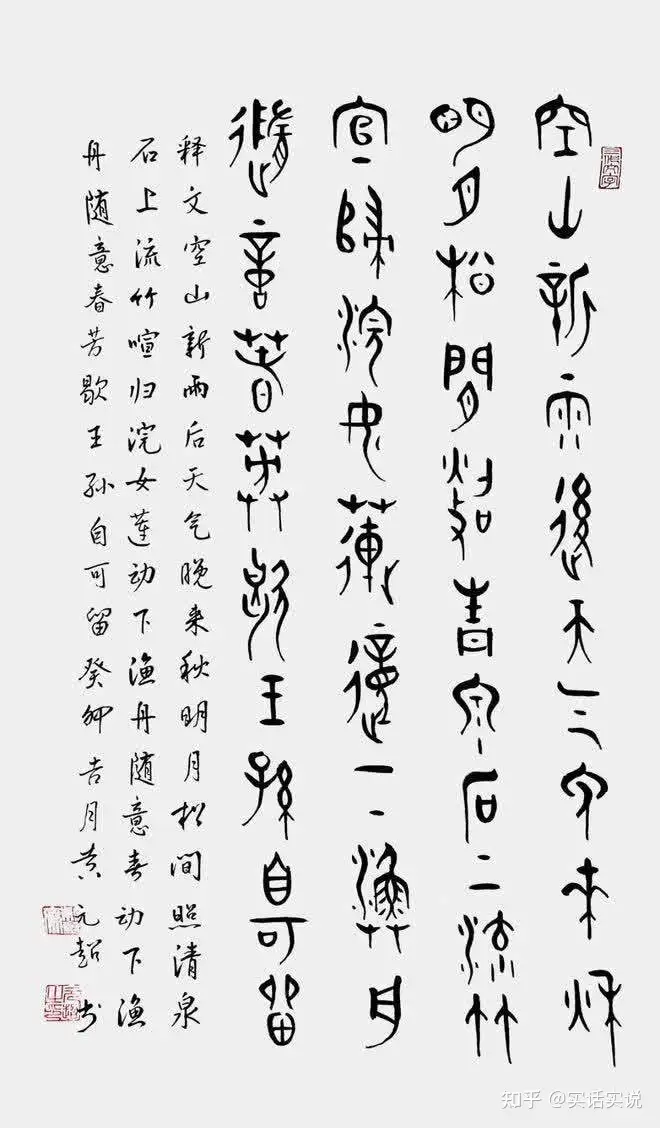 空山新雨後天气晚来秋
明月松間照青泉石上流竹
宣歸浣女蓮動下漁舟
隨意春芳歇王孫自可留
释文空山新雨后天气晚来秋明月松间照清泉
石上流竹喧归浣女莲动下渔舟随意春动下渔
舟随意春芳歇王孙自可留癸卯吉月黄元超书
知乎 @实话实说